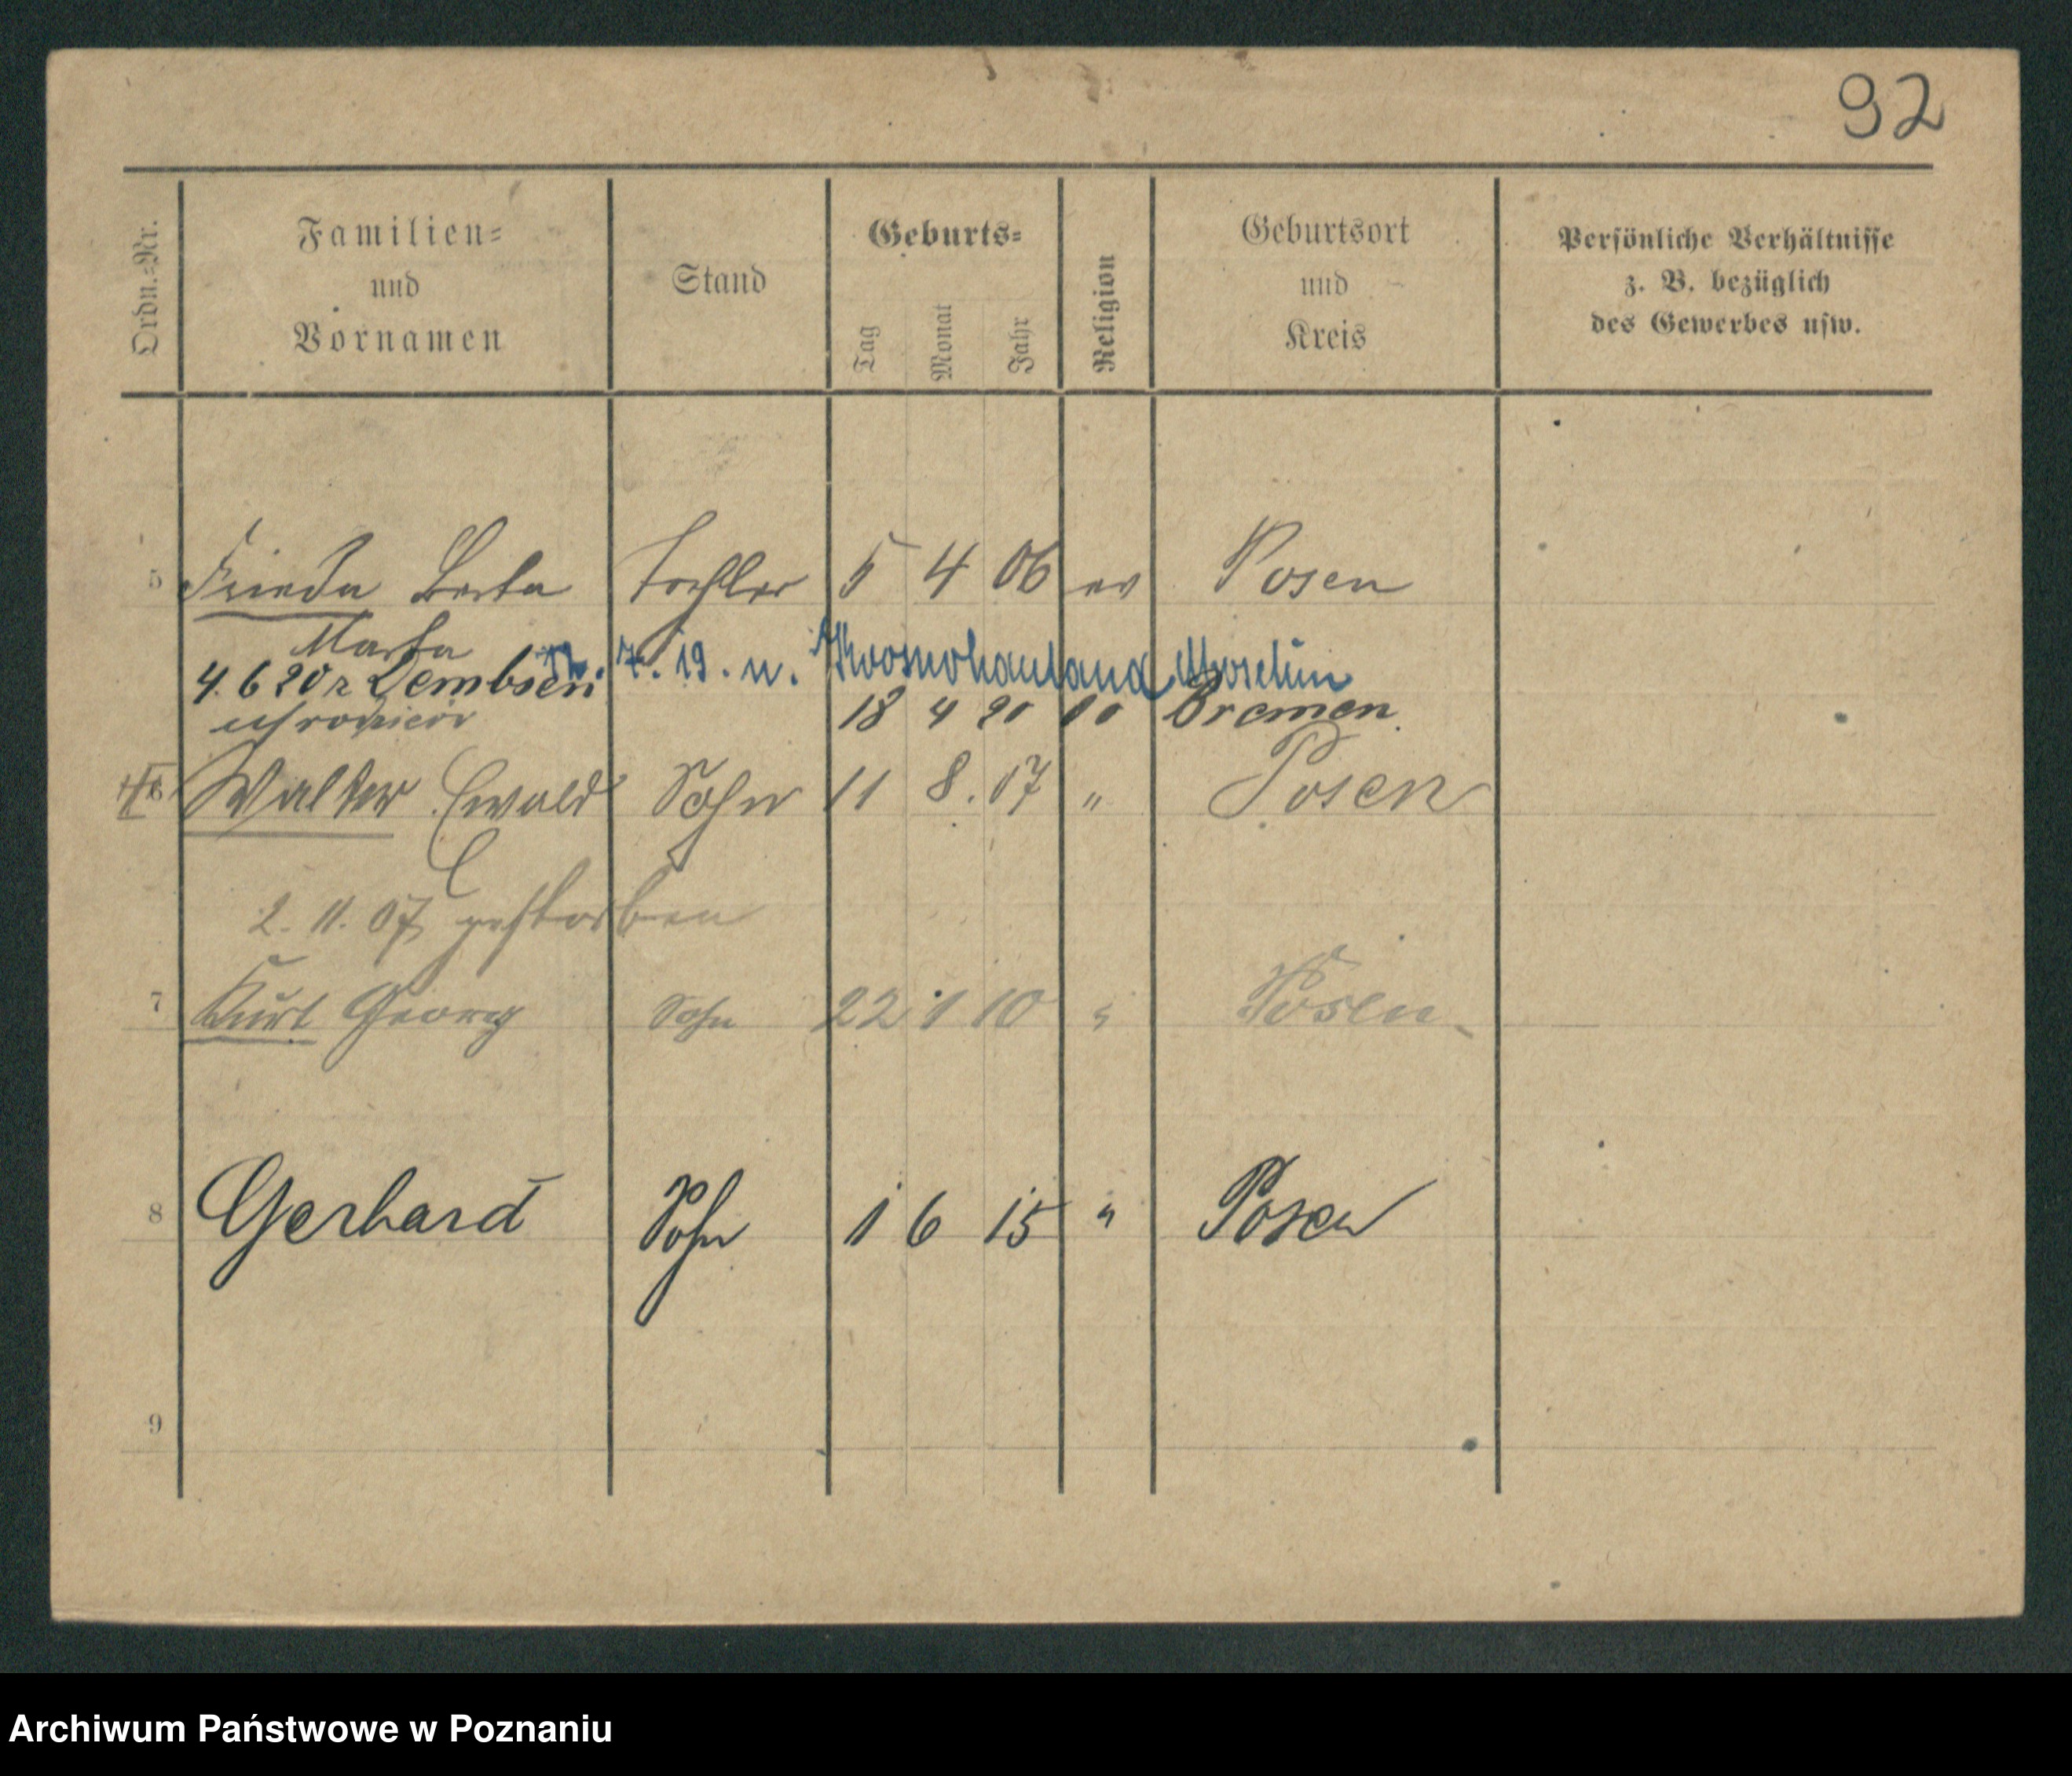 92
Ordn.-Nr.
Familien-
und
Vornamen
Stand
Geburts-
Tag
Monat
Jahr
Religion
Geburtsort
und
Kreis
Persönliche Verhältnisse
z. B. bezüglich
des Gewerbes usw.
5 Frieda Berta Tochter 5 4 06 ev Posen
Marta
7. 19. n.
4. 6 20 n Dembsen
18 4 20 Bremen
6 Walter Ewald Sohn 11 8. 07 " Posen
2. 11. 07 gestorben
7 Kurt Georg Sohn 22 1 10 " Posen
8 Gerhard Sohn 1 6 15 " Posen
9
Archiwum Państwowe w Poznaniu